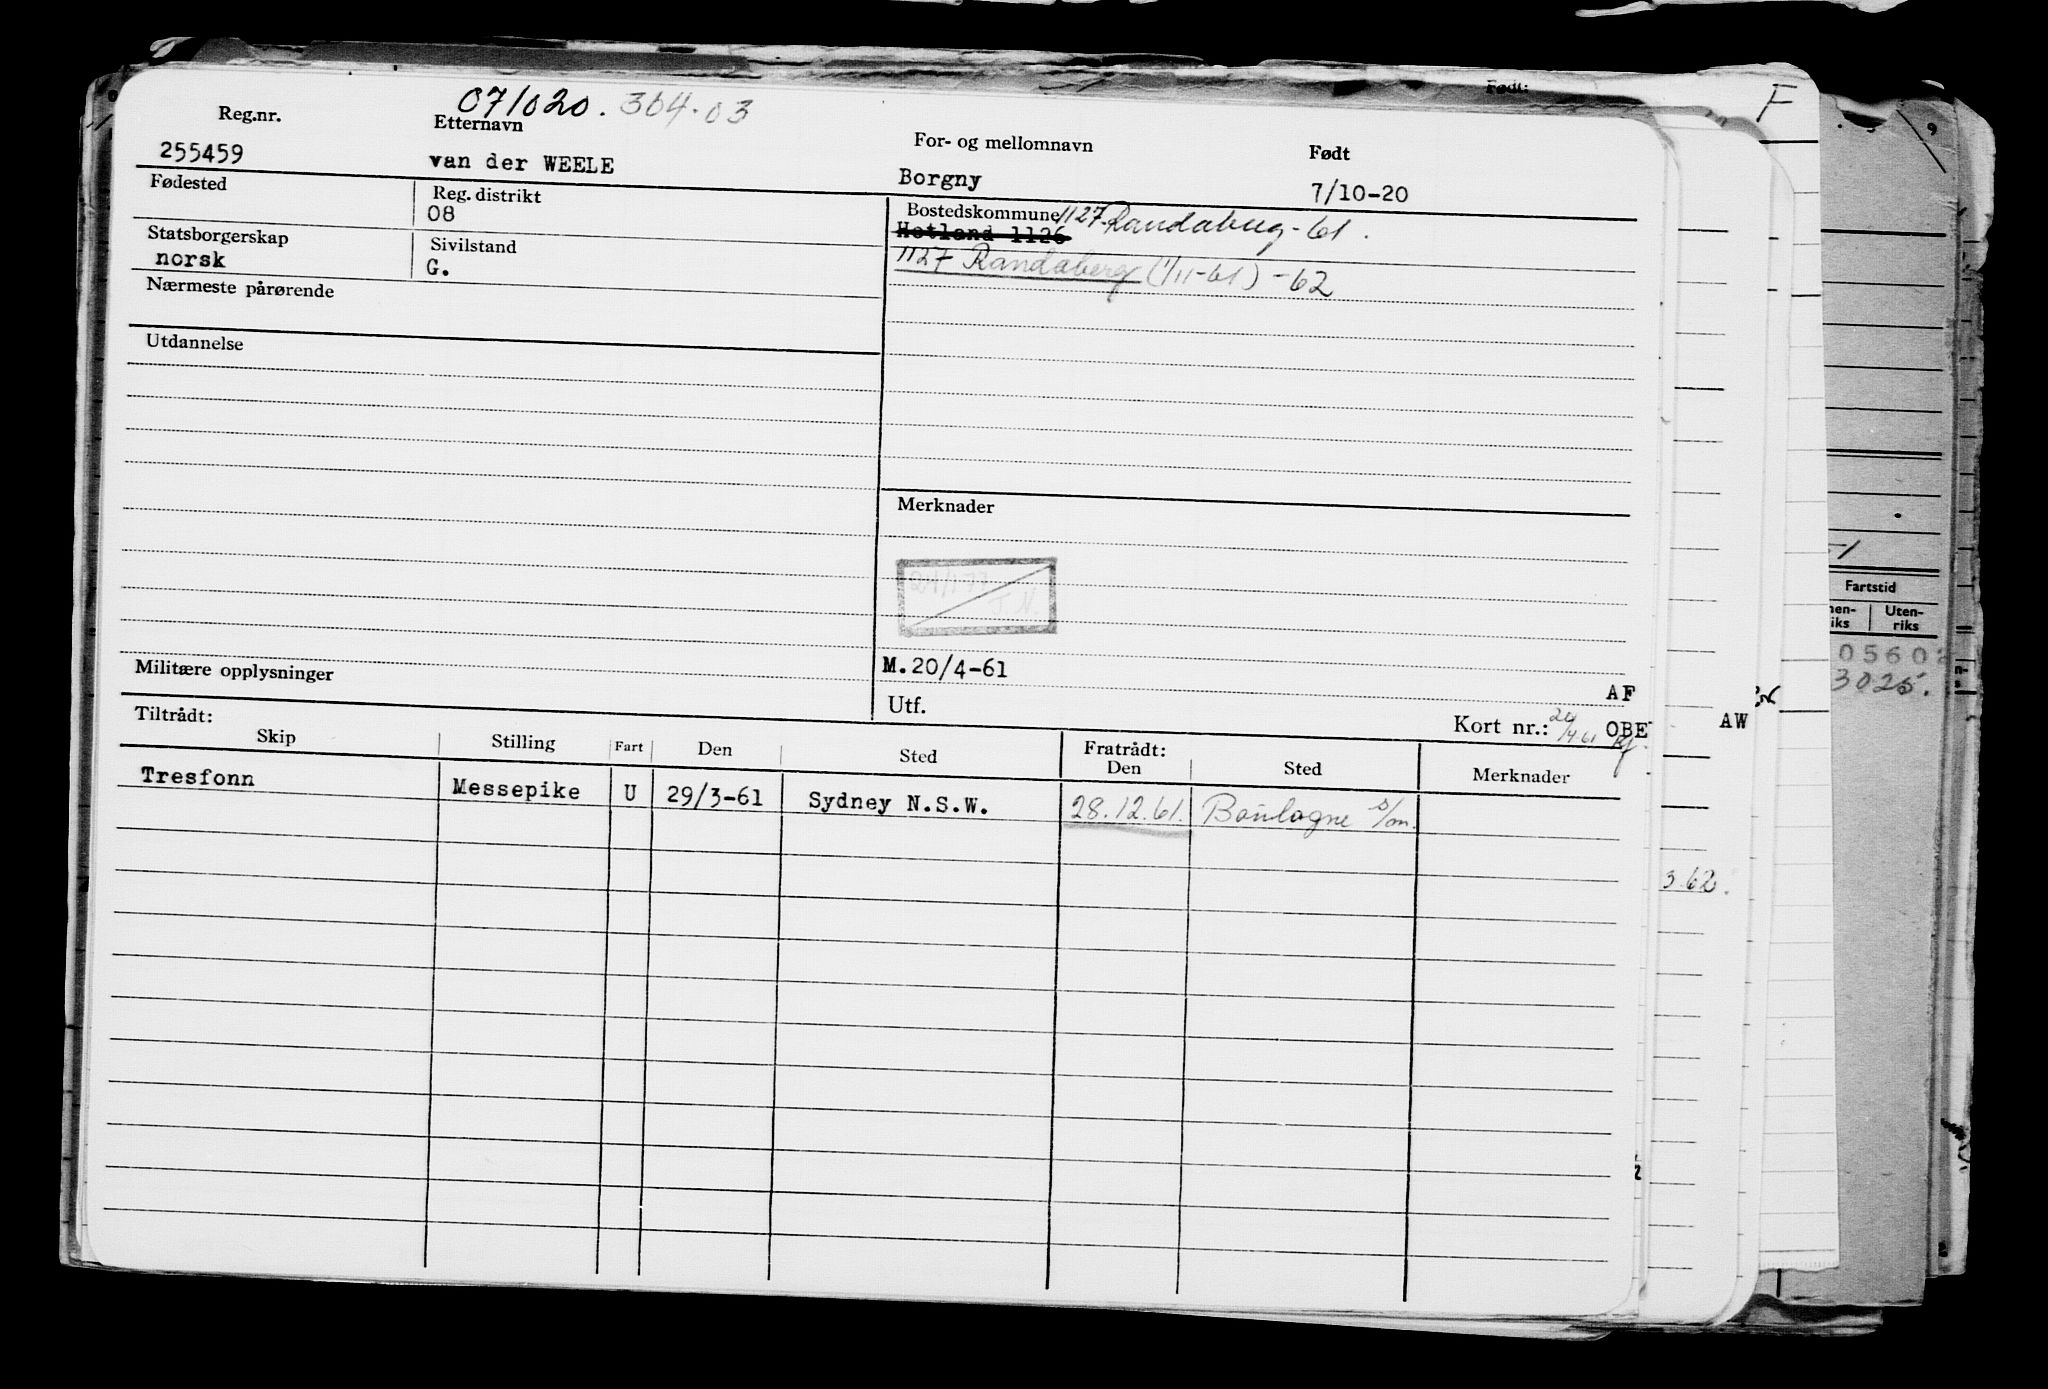 071020.364.03
Reg.nr. Etternavn For- og mellomnavn Født
255459 van der WEELE Borgny 7/10-20
Fødested Reg. distrikt Bostedskommune 1127 Randaberg-61.
08 Hetland 1126
Statsborgerskap Sivilstand 1127 Randaberg (1/11-61) -62
norsk G.
Nærmeste pårørende
Utdannelse
Merknader
Militære opplysninger M.20/4-61
AF
Utf. Kort nr.: OBE
Tiltrådt: Fratrådt:
Skip Stilling Fart Den Sted Den Sted Merknader
Tresfonn Messepike U 29/3-61 Sydney N.S.W. 28.12.61. Boulogne s/m.
Født:
F
9
Fartstid
Uten-
riks
iks
3025.
AW
3.62.